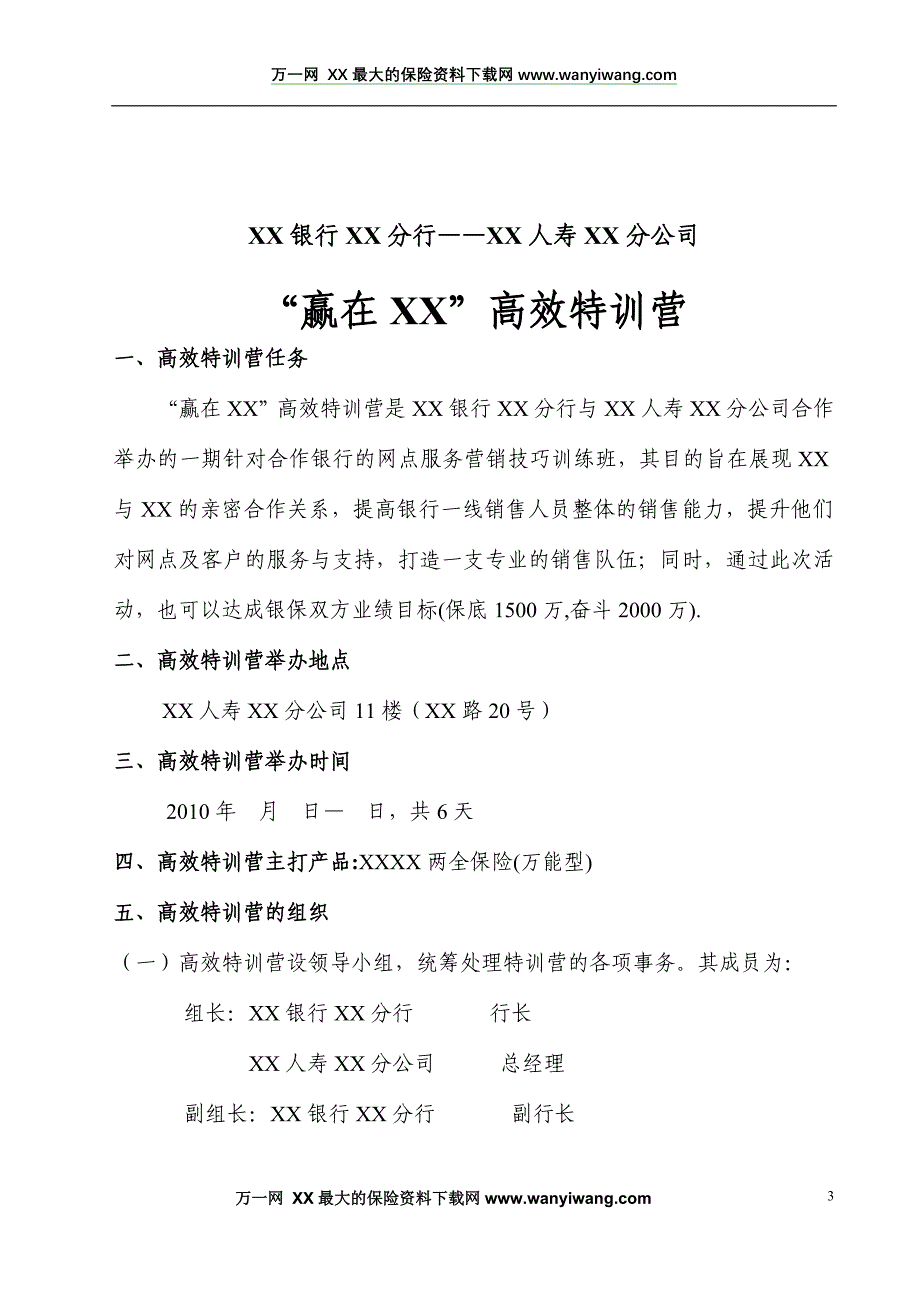 万一网 XX最大的保险资料下载网 www.wanyiwang.com
XX银行XX分行——XX人寿XX分公司
“赢在XX”高效特训营
一、高效特训营任务
“赢在XX”高效特训营是XX银行XX分行与XX人寿XX分公司合作
举办的一期针对合作银行的网点服务营销技巧训练班，其目的旨在展现XX
与XX的亲密合作关系，提高银行一线销售人员整体的销售能力，提升他们
对网点及客户的服务与支持，打造一支专业的销售队伍；同时，通过此次活
动，也可以达成银保双方业绩目标(保底1500万,奋斗2000万).
二、高效特训营举办地点
XX人寿XX分公司11楼（XX路20号）
三、高效特训营举办时间
2010年　月　日—　日，共6天
四、高效特训营主打产品:XXXX两全保险(万能型)
五、高效特训营的组织
（一）高效特训营设领导小组，统筹处理特训营的各项事务。其成员为：
组长：XX银行XX分行　　　行长
XX人寿XX分公司　　　总经理
副组长：XX银行XX分行　　　副行长
万一网 XX最大的保险资料下载网 www.wanyiwang.com　　　3